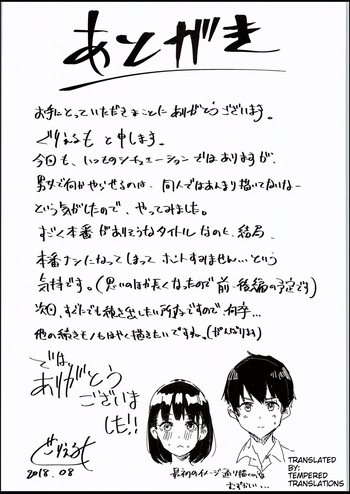 あとがき
お手にとっていただきまことにありがとうございます。
ぐりえるもと申します。
今回も、いつものシチュエーションではありますが、
男女で何かやらせるのは、同人ではあんまり描いてないなー
という気がしたので、やってみました。
すごく本番がありそうなタイトルなのに、結局
本番ナシになってしまってホントすみません…という
気持です。(思いのほか長くなったので前・後編の予定です)
次回、すぐにでも続き出したい所存ですので、何卒…
他の続きモノもはやく描きたいですね。(がんばります)
では、
ありがとう
ございま
した!!
ぐりえるも
2018.08
最初のイメージ通り描くのは
むずかしい…
TRANSLATED
BY:
TEMPERED
TRANSLATIONS